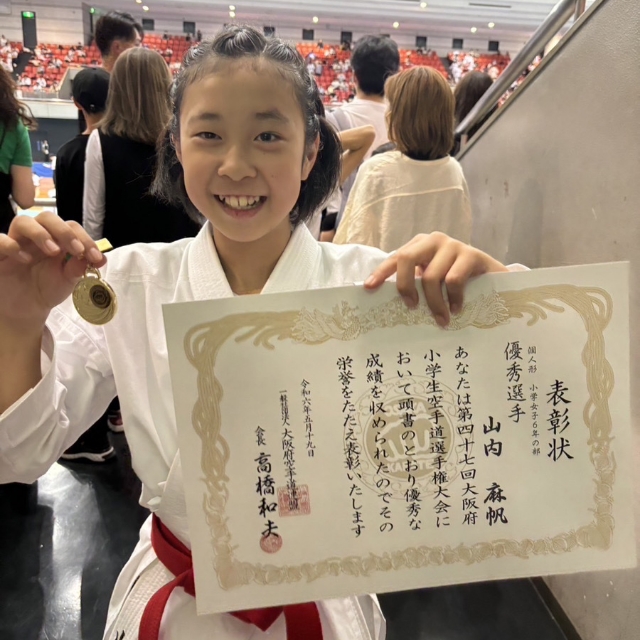 表彰状
個人形 小学女子6年の部
優秀選手
山内 麻帆
あなたは第四十七回大阪府
小学生空手道選手権大会に
おいて頭書のとおり優秀な
成績を収められたのでその
栄誉をたたえ表彰いたします
令和六年五月十九日
一般社団法人大阪府空手道連盟
会長 高橋和夫